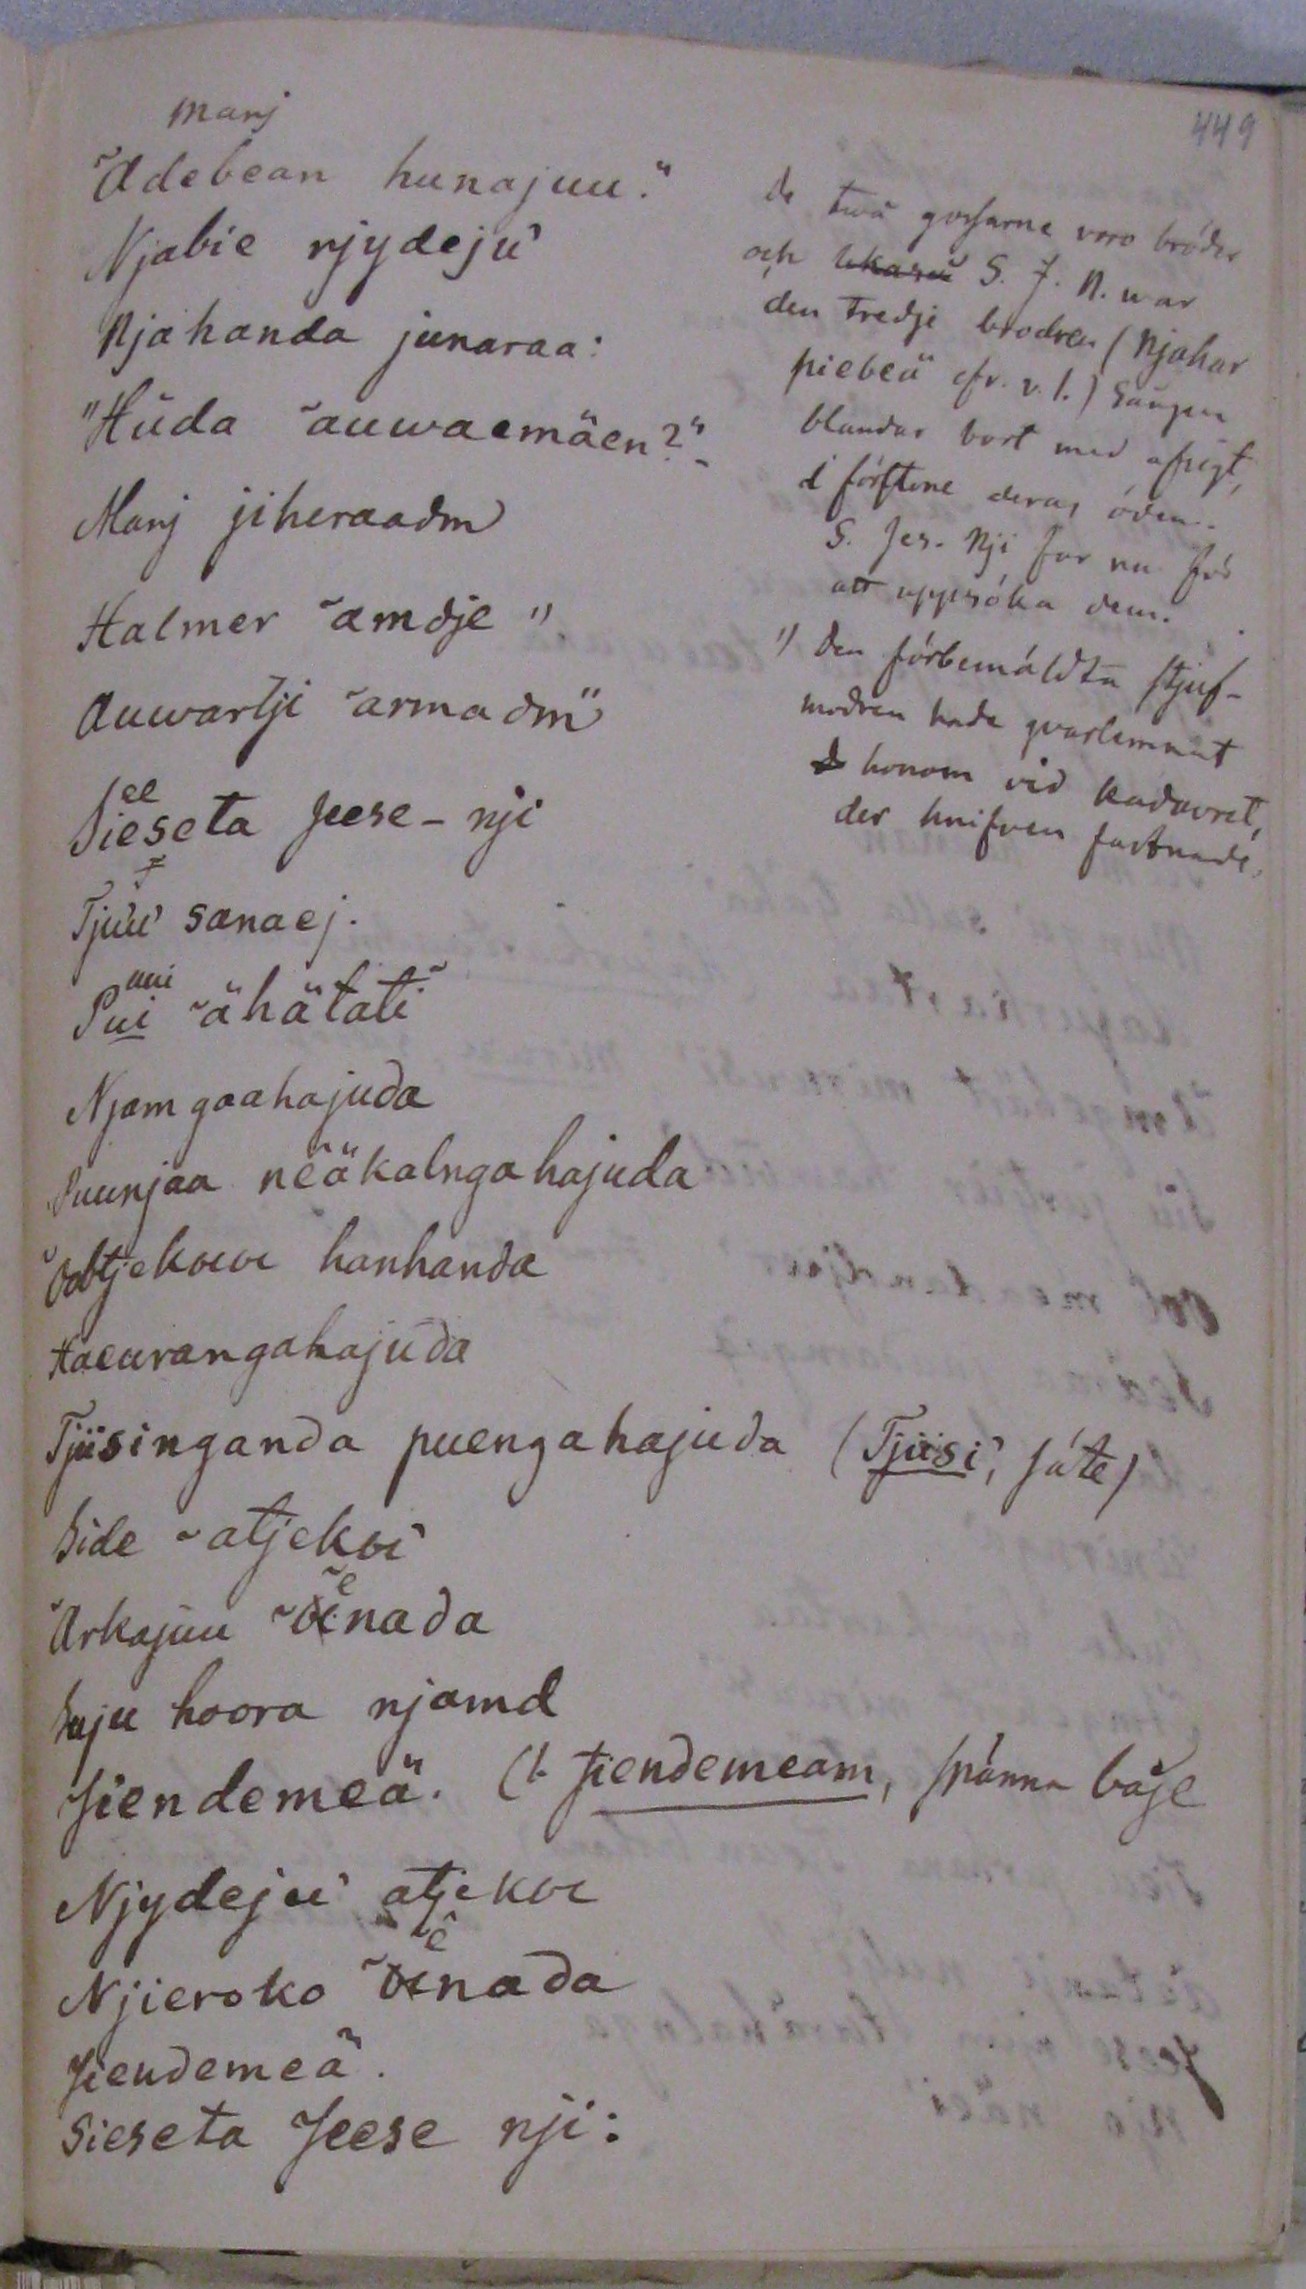 449
Manj
˜Adebean hunajuu."
Njabie njydeju'
Njahanda junaraa:
"Hûda ˜auwaemäen?"-
Manj jiheraadm
Halmer ˜amdje 1)
Auwartji ˜armadm"
ee
Sieseta Jeese-nji
Tjuu' sanaej.
uui
Pui ˜ähätati˜
Njamgaahajuda
Puunjaa nêäkalngahajuda
hanhanda
Haeurangahajuda
Tjüsinganda puengahajuda (Tjüsi', säte)
Side ˜atjekoi'
˜Arkajuu ˜ênada
Saju hoora njamd
Jiendemeä. (1. Jiendemeam, spänna båge
Njydeju' atjekoe
Njieroko ˜ênada
Jiendemeä.
Sieseta Jeese nji:
de två gossarne voro bröder
och S. J. N. war
den tredje brodren (Njahar
piebeä cfr. v. 1.) Sången
blandar bort med afsigt,
i förstone deras öden.
S. Jes. Nji far nu för
att uppsöka dem.
1) Den förbemäldta stjuf-
modren hade qvarlemnat
honom vid kadavret,
der knifven fastnade.